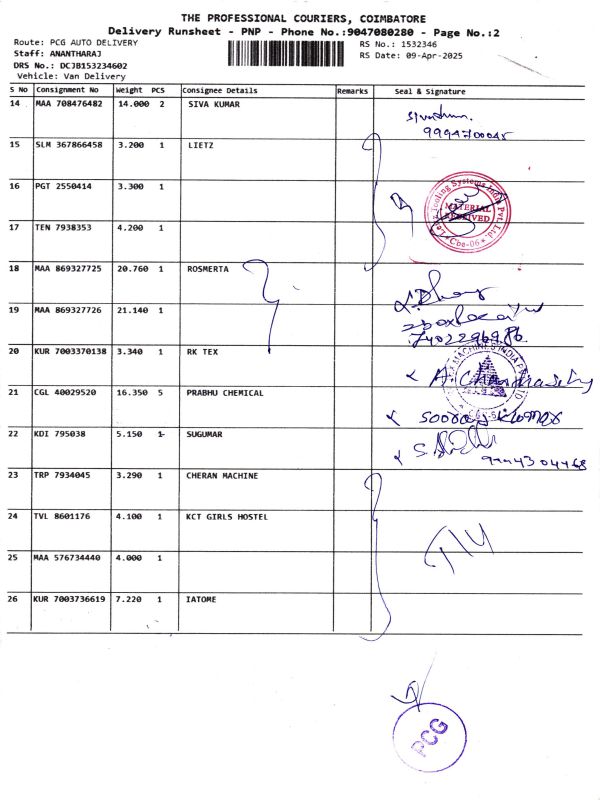 THE PROFESSIONAL COURIERS, COIMBATORE
Delivery Runsheet - PNP - Phone No.:9047080280 - Page No.:2
Route: PCG AUTO DELIVERY
Staff: ANANTHARAJ
DRS No.: DCJB153234602
Vehicle: Van Delivery
RS No.: 1532346
RS Date: 09-Apr-2025
S No Consignment No Weight PCS Consignee Details Remarks Seal & Signature
14 MAA 708476482 14.000 2 SIVA KUMAR
15 SLM 367866458 3.200 1 LIETZ
16 PGT 2550414 3.300 1
MATERIAL RECEIVED
Cbe-06
17 TEN 7938353 4.200 1
18 MAA 869327725 20.760 1 ROSMERTA
19 MAA 869327726 21.140 1
7402296986
20 KUR 7003370138 3.340 1 RK TEX
21 CGL 40029520 16.350 5 PRABHU CHEMICAL
22 KDI 795038 5.150 1 SUGUMAR
23 TRP 7934045 3.290 1 CHERAN MACHINE
24 TVL 8601176 4.100 1 KCT GIRLS HOSTEL
25 MAA 576734440 4.000 1
26 KUR 7003736619 7.220 1 IATOME
PCG